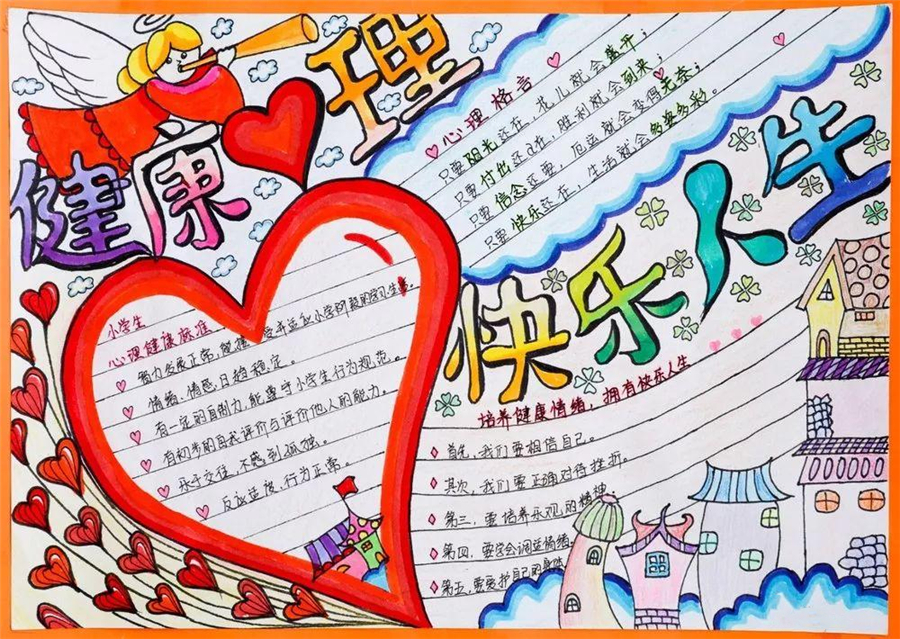 健康心理
快乐人生
心理格言
只要阳光还在,花儿就会盛开;
只要付出还在,胜利就会到来;
只要信念还要,厄运就会变得无奈;
只要快乐还在,生活就会多姿多彩。
小学生
心理健康标准
智力发展正常,能 小学阶段的学习生
情绪、情感日趋稳定。
有一定的自制力,能遵守小学生行为规范。
有初步的自我评价与评价他人的能力。
乐于交往,不感到孤独。
反应适度、行为正常。
培养健康情绪,拥有快乐人生
首先,我们要相信自己。
其次,我们要正确对待挫折。
第三,要培养乐观的精神
第四,要学会调适情绪
第五,要爱护自己的身体